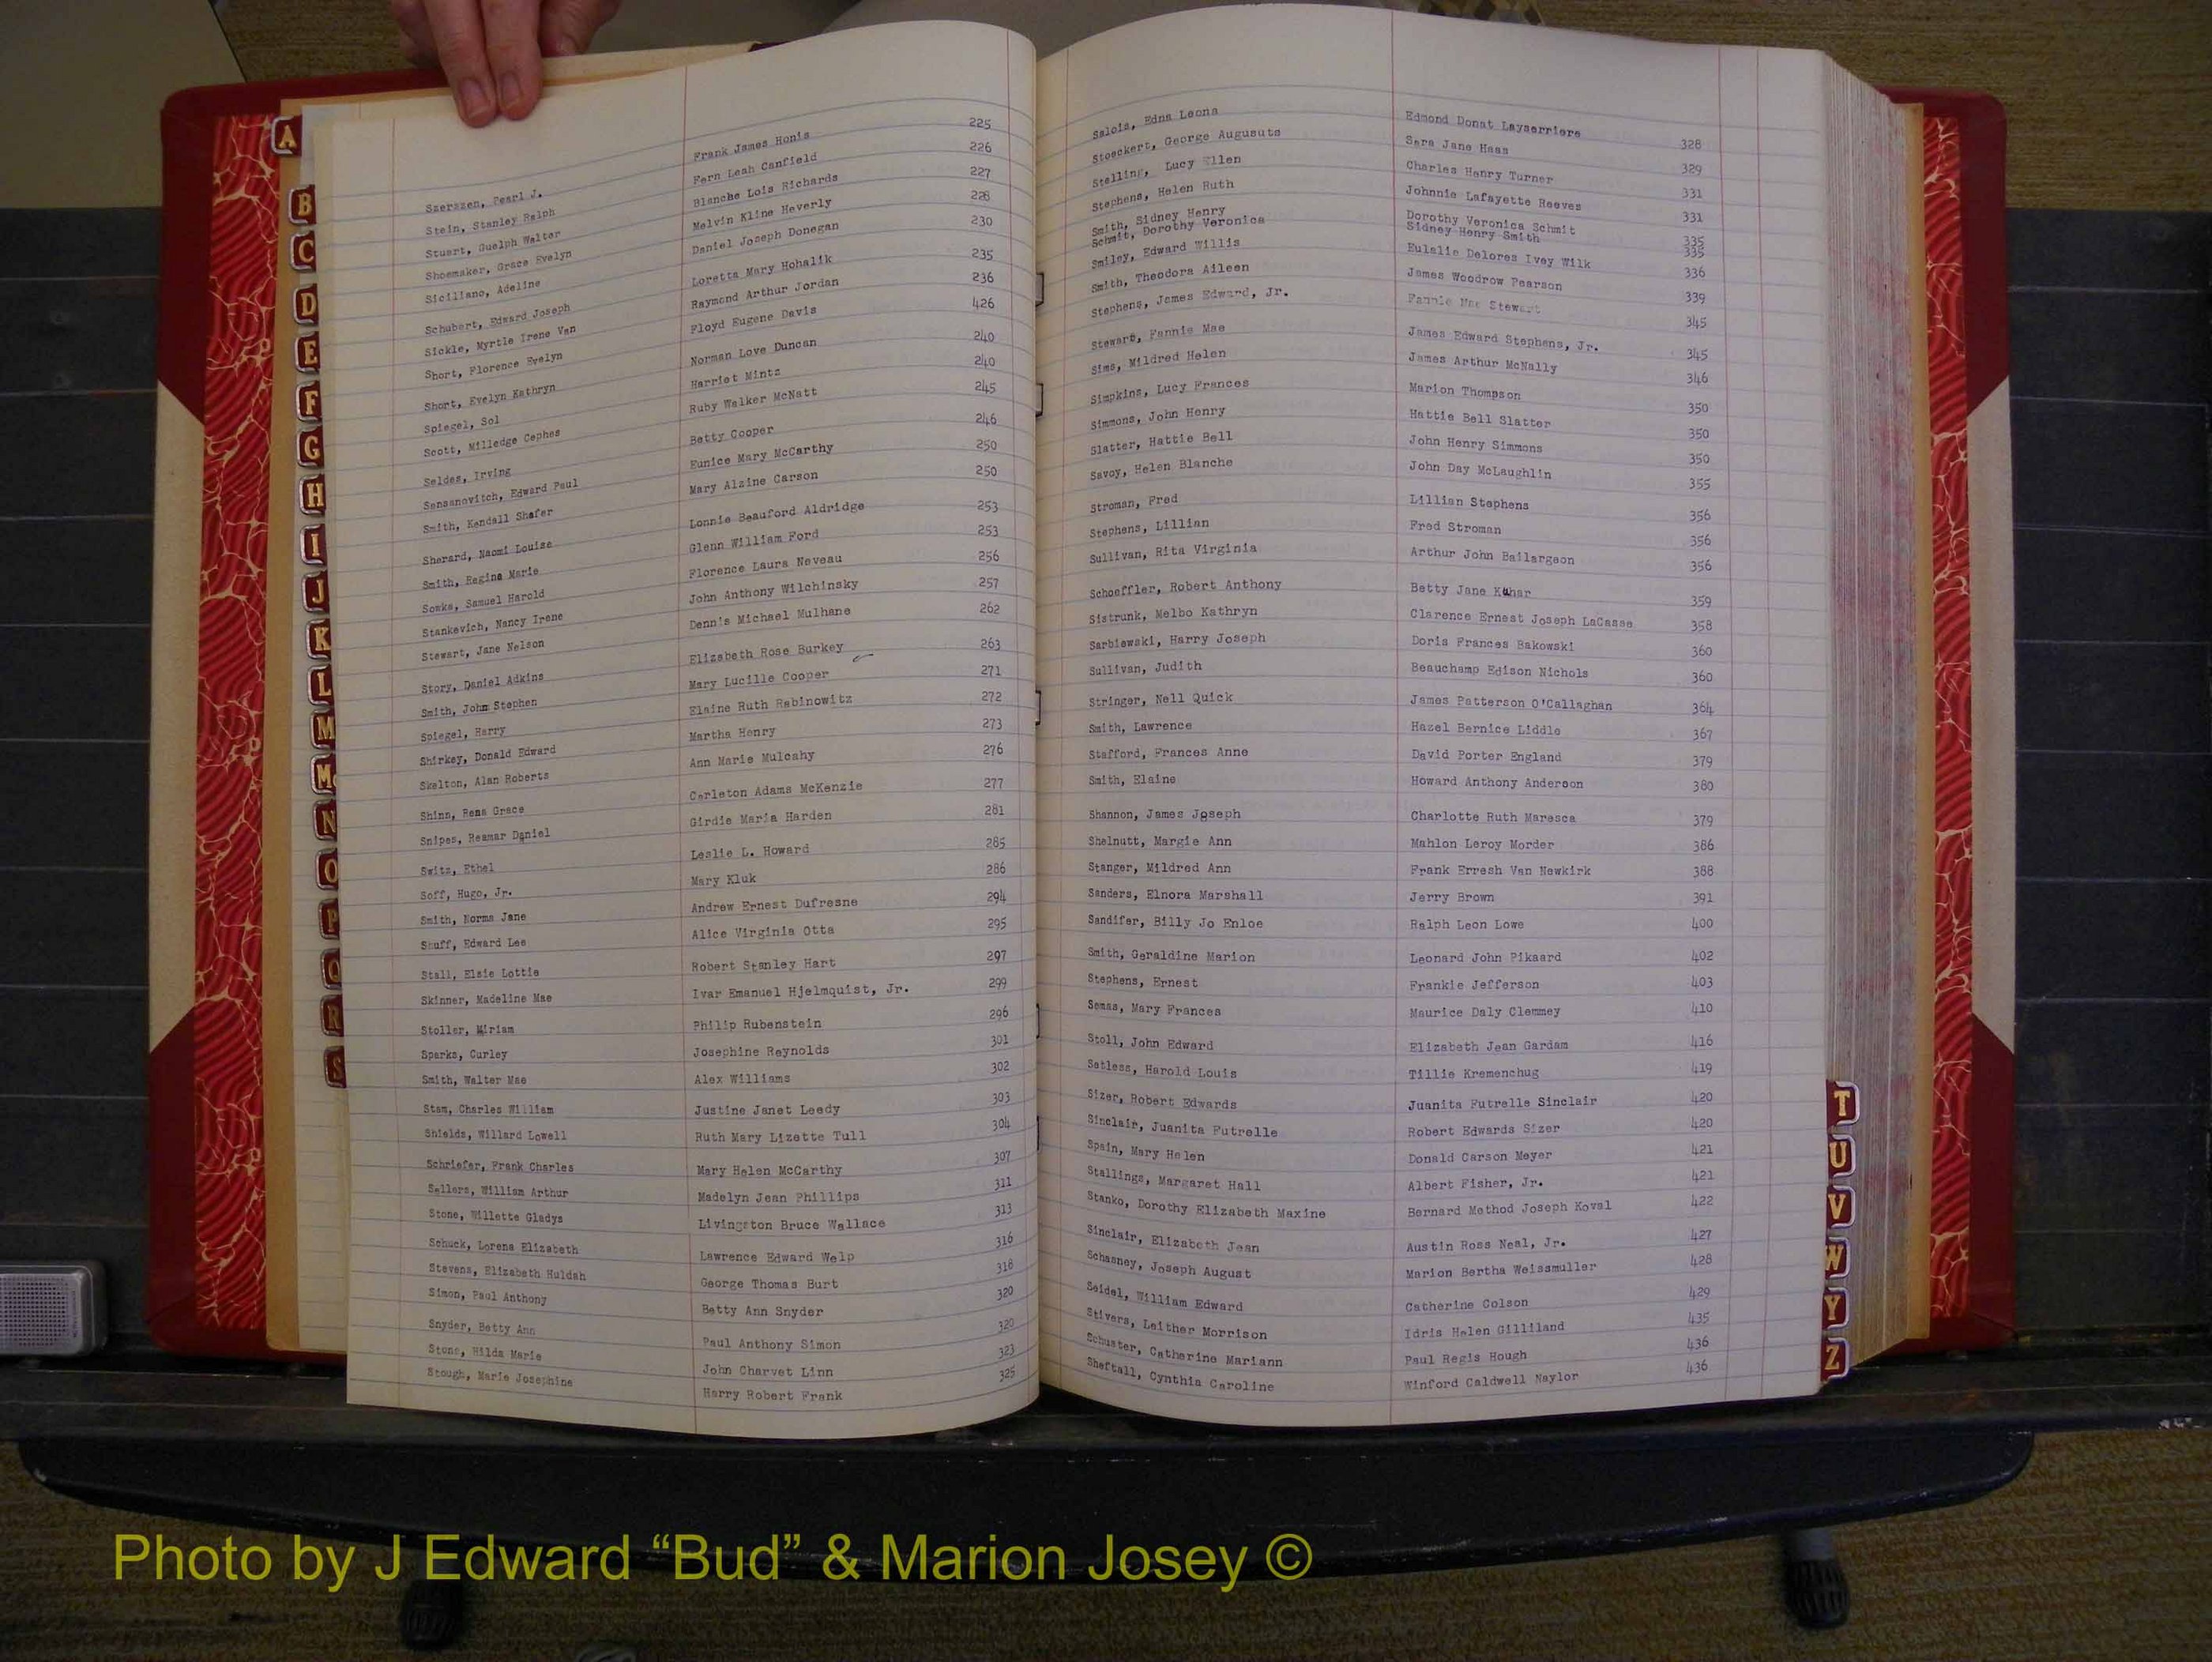 A
B
C
D
E
F
G
H
I
J
K
L
M
Mc
N
O
P
Q
R
S
Szerszen, Pearl J. Frank James Honis 225
Stein, Stanley Ralph Fern Leah Canfield 226
Stuart, Guelph Walter Blanche Lois Richards 227
Shoemaker, Grace Evelyn Melvin Kline Heverly 228
Siciliano, Adeline Daniel Joseph Donegan 230
Schubert, Edward Joseph Loretta Mary Hohalik 235
Sickle, Myrtle Irene Van Raymond Arthur Jordan 236
Short, Florence Evelyn Floyd Eugene Davis 426
Short, Evelyn Kathryn Norman Love Duncan 240
Spiegel, Sol Harriet Mintz 240
Scott, Milledge Cephes Ruby Walker McNatt 245
Seldes, Irving Betty Cooper 246
Sensanovitch, Edward Paul Eunice Mary McCarthy 250
Smith, Kendall Shafer Mary Alzine Carson 250
Sherard, Naomi Louise Lonnie Beauford Aldridge 253
Smith, Regina Marie Glenn William Ford 253
Sowka, Samuel Harold Florence Laura Neveau 256
Stankevich, Nancy Irene John Anthony Wilchinsky 257
Stewart, Jane Nelson Dennis Michael Mulhane 262
Story, Daniel Adkins Elizabeth Rose Burkey 263
Smith, John Stephen Mary Lucille Cooper 271
Spiegel, Harry Elaine Ruth Rabinowitz 272
Shirkey, Donald Edward Martha Henry 273
Skelton, Alan Roberts Ann Marie Mulcahy 276
Shinn, Rena Grace Carleton Adams McKenzie 277
Snipes, Reamar Daniel Girdie Maria Harden 281
Switz, Ethel Leslie L. Howard 285
Soff, Hugo, Jr. Mary Kluk 286
Smith, Norma Jane Andrew Ernest Dufresne 294
Shuff, Edward Lee Alice Virginia Otta 295
Stall, Elsie Lottie Robert Stanley Hart 297
Skinner, Madeline Mae Ivar Emanuel Hjelmquist, Jr. 299
Stoller, Miriam Philip Rubenstein 296
Sparks, Curley Josephine Reynolds 301
Smith, Walter Mae Alex Williams 302
Stam, Charles William Justine Janet Leedy 303
Shields, Willard Lowell Ruth Mary Lizette Tull 304
Schriefer, Frank Charles Mary Helen McCarthy 307
Sellers, William Arthur Madelyn Jean Phillips 311
Stone, Willette Gladys Livingston Bruce Wallace 313
Schuck, Lorena Elizabeth Lawrence Edward Welp 316
Stevens, Elizabeth Huldah George Thomas Burt 318
Simon, Paul Anthony Betty Ann Snyder 320
Snyder, Betty Ann Paul Anthony Simon 320
Stone, Hilda Marie John Charvet Linn 323
Stough, Marie Josephine Harry Robert Frank 325
Salois, Edna Leona Edmond Donat Layserriere 328
Stoeckert, George Augusuts Sara Jane Haas 329
Stelling, Lucy Ellen Charles Henry Turner 331
Stephens, Helen Ruth Johnnie Lafayette Reeves 331
Smith, Sidney Henry Dorothy Veronica Schmit 335
Schmit, Dorothy Veronica Sidney Henry Smith 335
Smiley, Edward Willis Eulalie Delores Ivey Wilk 336
Smith, Theodora Aileen James Woodrow Pearson 339
Stephens, James Edward, Jr. Fannie Mae Stewart 345
Steward, Fannie Mae James Edward Stephens, Jr. 345
Sims, Mildred Helen James Arthur McNally 346
Simpkins, Lucy Frances Marion Thompson 350
Simmons, John Henry Hattie Bell Slatter 350
Slatter, Hattie Bell John Henry Simmons 350
Savoy, Helen Blanche John Day McLaughlin 355
Stroman, Fred Lillian Stephens 356
Stephens, Lillian Fred Stroman 356
Sullivan, Rita Virginia Arthur John Bailargeon 356
Schoeffler, Robert Anthony Betty Jane Kuhar 359
Sistrunk, Melbo Kathryn Clarence Ernest Joseph LaCasse 358
Sarbiewski, Harry Joseph Doris Frances Bakowski 360
Sullivan, Judith Beauchamp Edison Nichols 360
Stringer, Nell Quick James Patterson O'Callaghan 364
Smith, Lawrence Hazel Bernice Liddle 367
Stafford, Frances Anne David Porter England 379
Smith, Elaine Howard Anthony Anderson 380
Shannon, James Joseph Charlotte Ruth Maresca 379
Shelnutt, Margie Ann Mahlon Leroy Morder 386
Stanger, Mildred Ann Frank Erresh Van Newkirk 388
Sanders, Elnora Marshall Jerry Brown 391
Sandifer, Billy Jo Enloe Ralph Leon Lowe 400
Smith, Geraldine Marion Leonard John Pikaard 402
Stephens, Ernest Frankie Jefferson 403
Semas, Mary Frances Maurice Daly Clemmey 410
Stoll, John Edward Elizabeth Jean Gardam 416
Satless, Harold Louis Tillie Kremenchug 419
Sizer, Robert Edwards Juanita Futrelle Sinclair 420
Sinclair, Juanita Futrelle Robert Edwards Sizer 420
Spain, Mary Helen Donald Carson Meyer 421
Stallings, Margaret Hall Albert Fisher, Jr. 421
Stanko, Dorothy Elizabeth Maxine Bernard Method Joseph Koval 422
Sinclair, Elizabeth Jean Austin Ross Neal, Jr. 427
Schasney, Joseph August Marion Bertha Weissmuller 428
Seidel, William Edward Catherine Colson 429
Stivers, Leither Morrison Idris Helen Gilliland 435
Schuster, Catherine Mariann Paul Regis Hough 436
Sheftall, Cynthia Caroline Winford Caldwell Naylor 436
T
U
V
W
Y
Z
Photo by J Edward “Bud” & Marion Josey ©